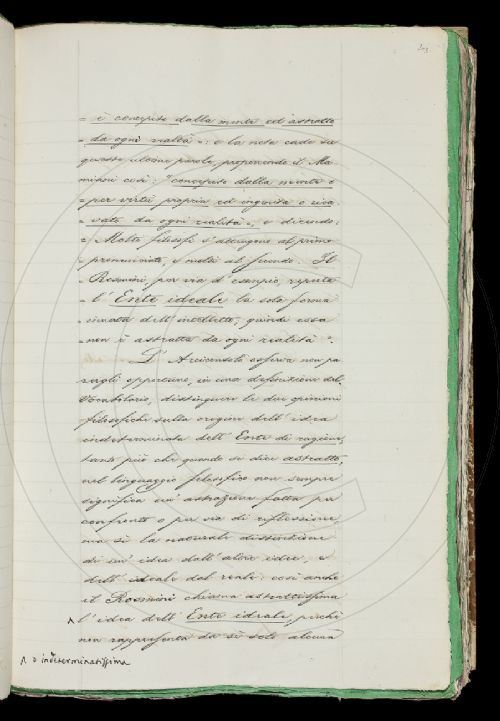 - è concepito dalla mente ed astratto
- da ogni realtà -: e la nota cade su
queste ultime parole, proponendo il Ma-
miani così: "concepito dalla mente o
- per virtù propria ed ingenita o rica-
vato da ogni realità -, e dicendo:
- Molti filosofi s'attengono al primo
- pronunciato, e molti al secondo. Il
- Rosmini, per via d'esempio, reputa
- l'Ente ideale la sola forma
innata dell'intelletto; quindi essa
- non è astratta da ogni realità -.
L'Arciconsolo osserva non pa-
rergli opportuno, in una definizione del
Vocabolario, distinguere le due opinioni
filosofiche sulla origine dell'idea
indeterminata dell'Ente di ragione,
tanto più che quando si dice astratto,
nel linguaggio filosofico non sempre
significa un'astrazione fatta per
confronto o per via di riflessione,
ma sì la naturale distinzione
di un'idea dall'altre idee, e
dell'ideale dal reale: così anche
il Rosmini chiama astrattissima
^ l'idea dell'Ente ideale, perchè
non rappresenta da sè sola alcuna
^ o indeterminatissima